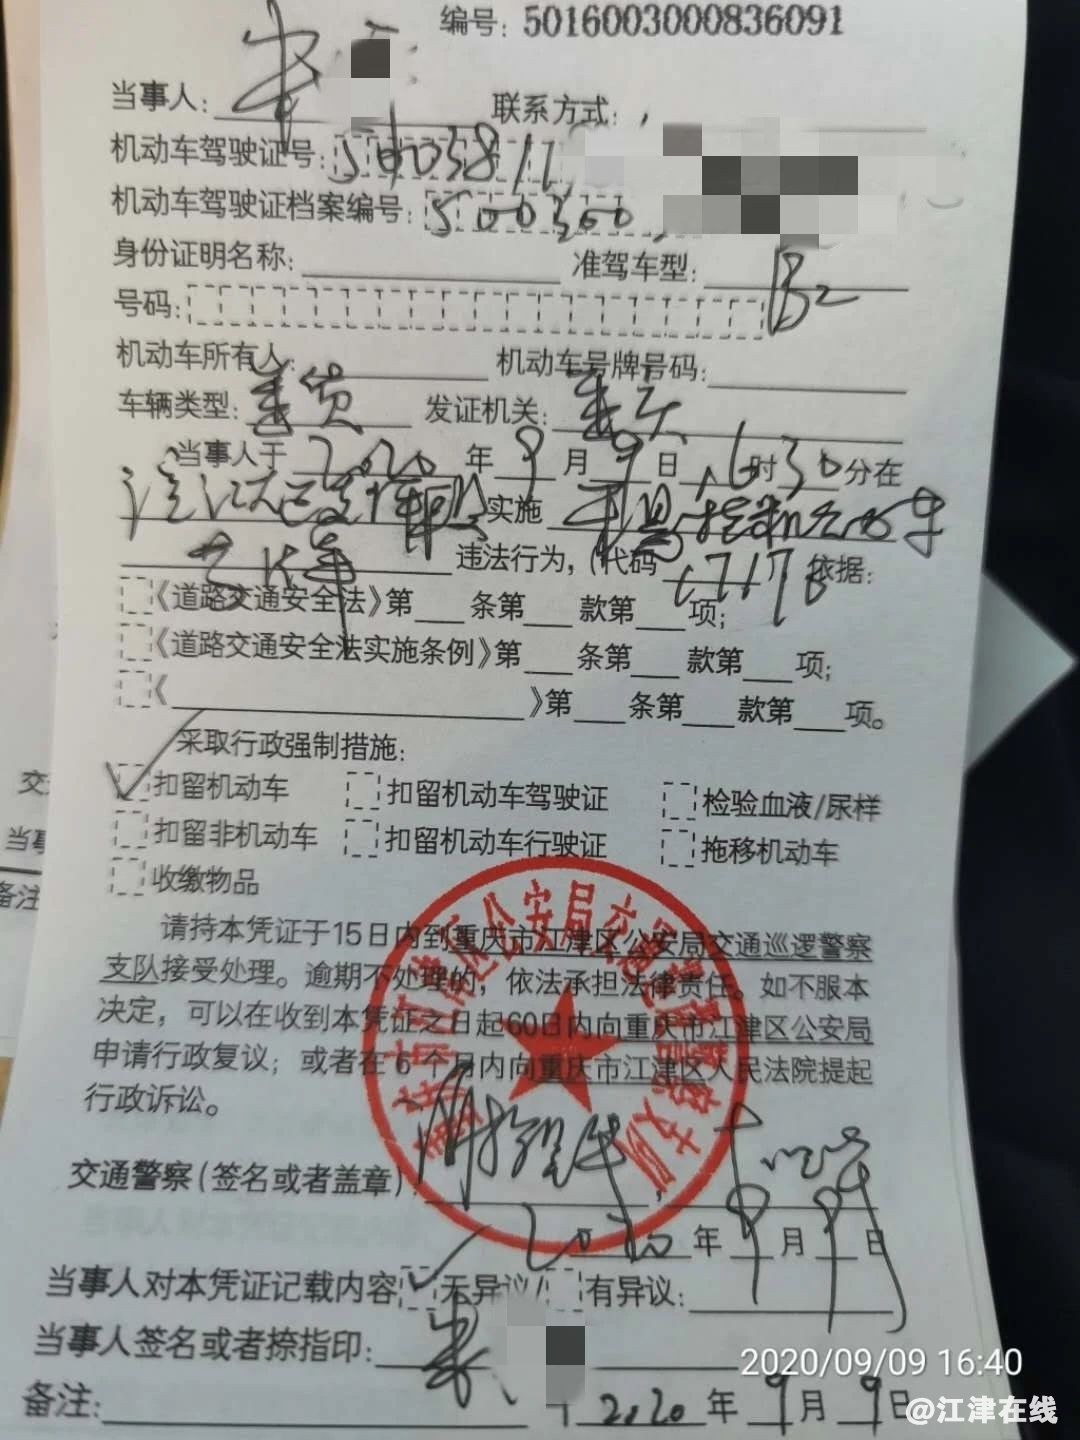 编号: 5016003000836091
当事人: 联系方式:
机动车驾驶证号: 5003811
机动车驾驶证档案编号: 500300
身份证明名称: 准驾车型: B2
号码:
机动车所有人: 机动车号牌号码:
车辆类型: 重货 发证机关: 重庆
当事人于 2020 年 9 月 9 日 16时30分在
实施
违法行为,(代码 1717B 依据:
《道路交通安全法》第 条第 款第 项;
《道路交通安全法实施条例》第 条第 款第 项;
《 》第 条第 款第 项。
采取行政强制措施:
扣留机动车 扣留机动车驾驶证 检验血液/尿样
扣留非机动车 扣留机动车行驶证 拖移机动车
收缴物品
请持本凭证于15日内到重庆市江津区公安局交通巡逻警察
支队接受处理。逾期不处理的,依法承担法律责任。如不服本
决定,可以在收到本凭证之日起60日内向重庆市江津区公安局
申请行政复议;或者在6个月内向重庆市江津区人民法院提起
行政诉讼。
交通警察(签名或者盖章)
2020 年 9 月 9 日
当事人对本凭证记载内容 无异议/ 有异议:
当事人签名或者捺指印:
2020/09/09 16:40
备注: 2020 年 9 月 9 日
@江津在线